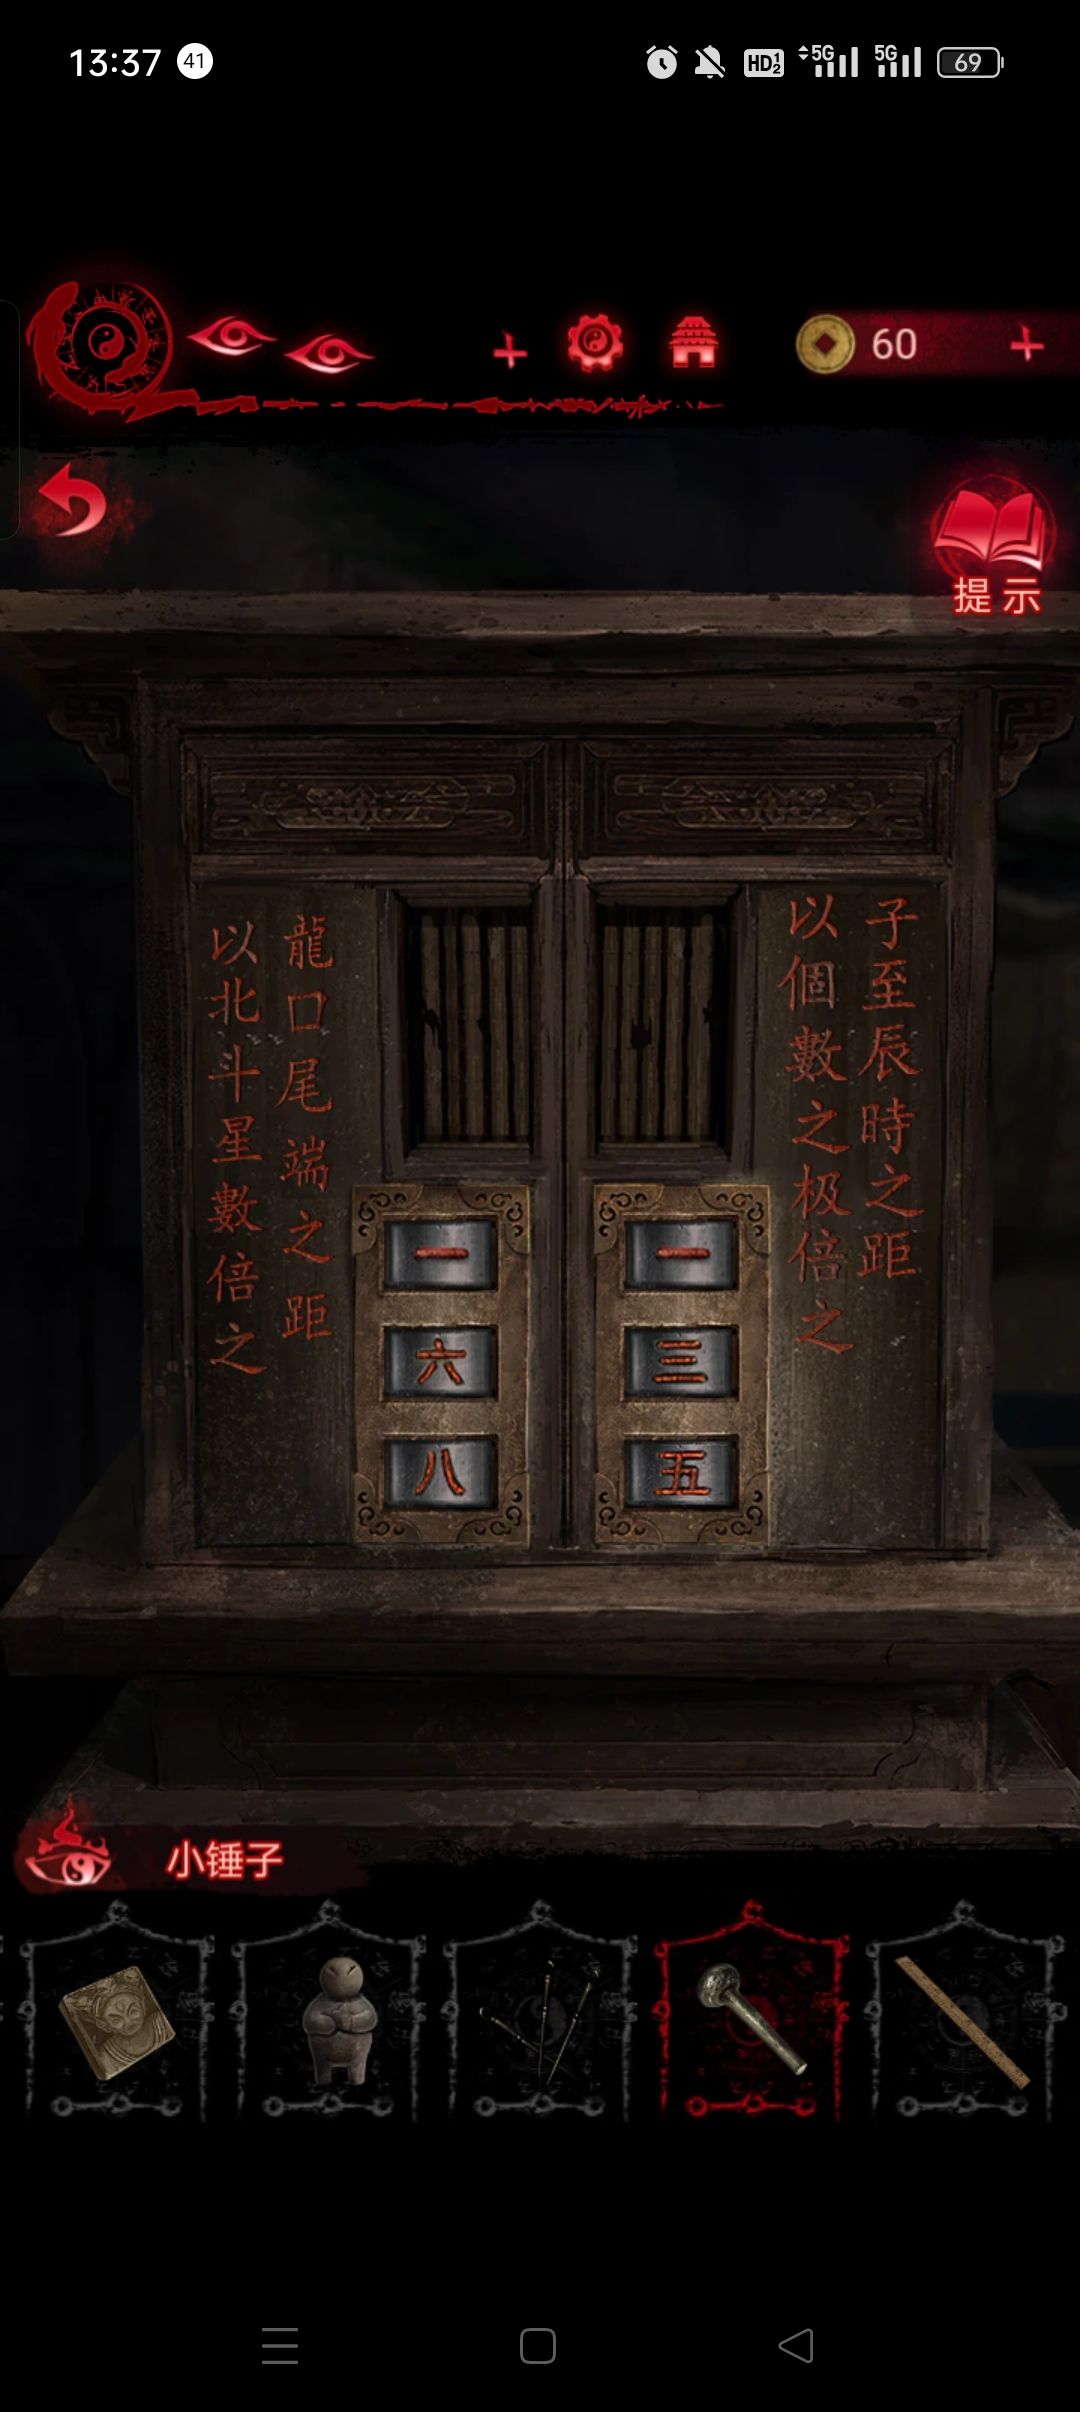 13:37 41 HD 1 2 5G 5G 69
60
提示
子至辰時之距
以個數之极倍之
龍口尾端之距
以北斗星數倍之
一
六
八
一
三
五
小锤子